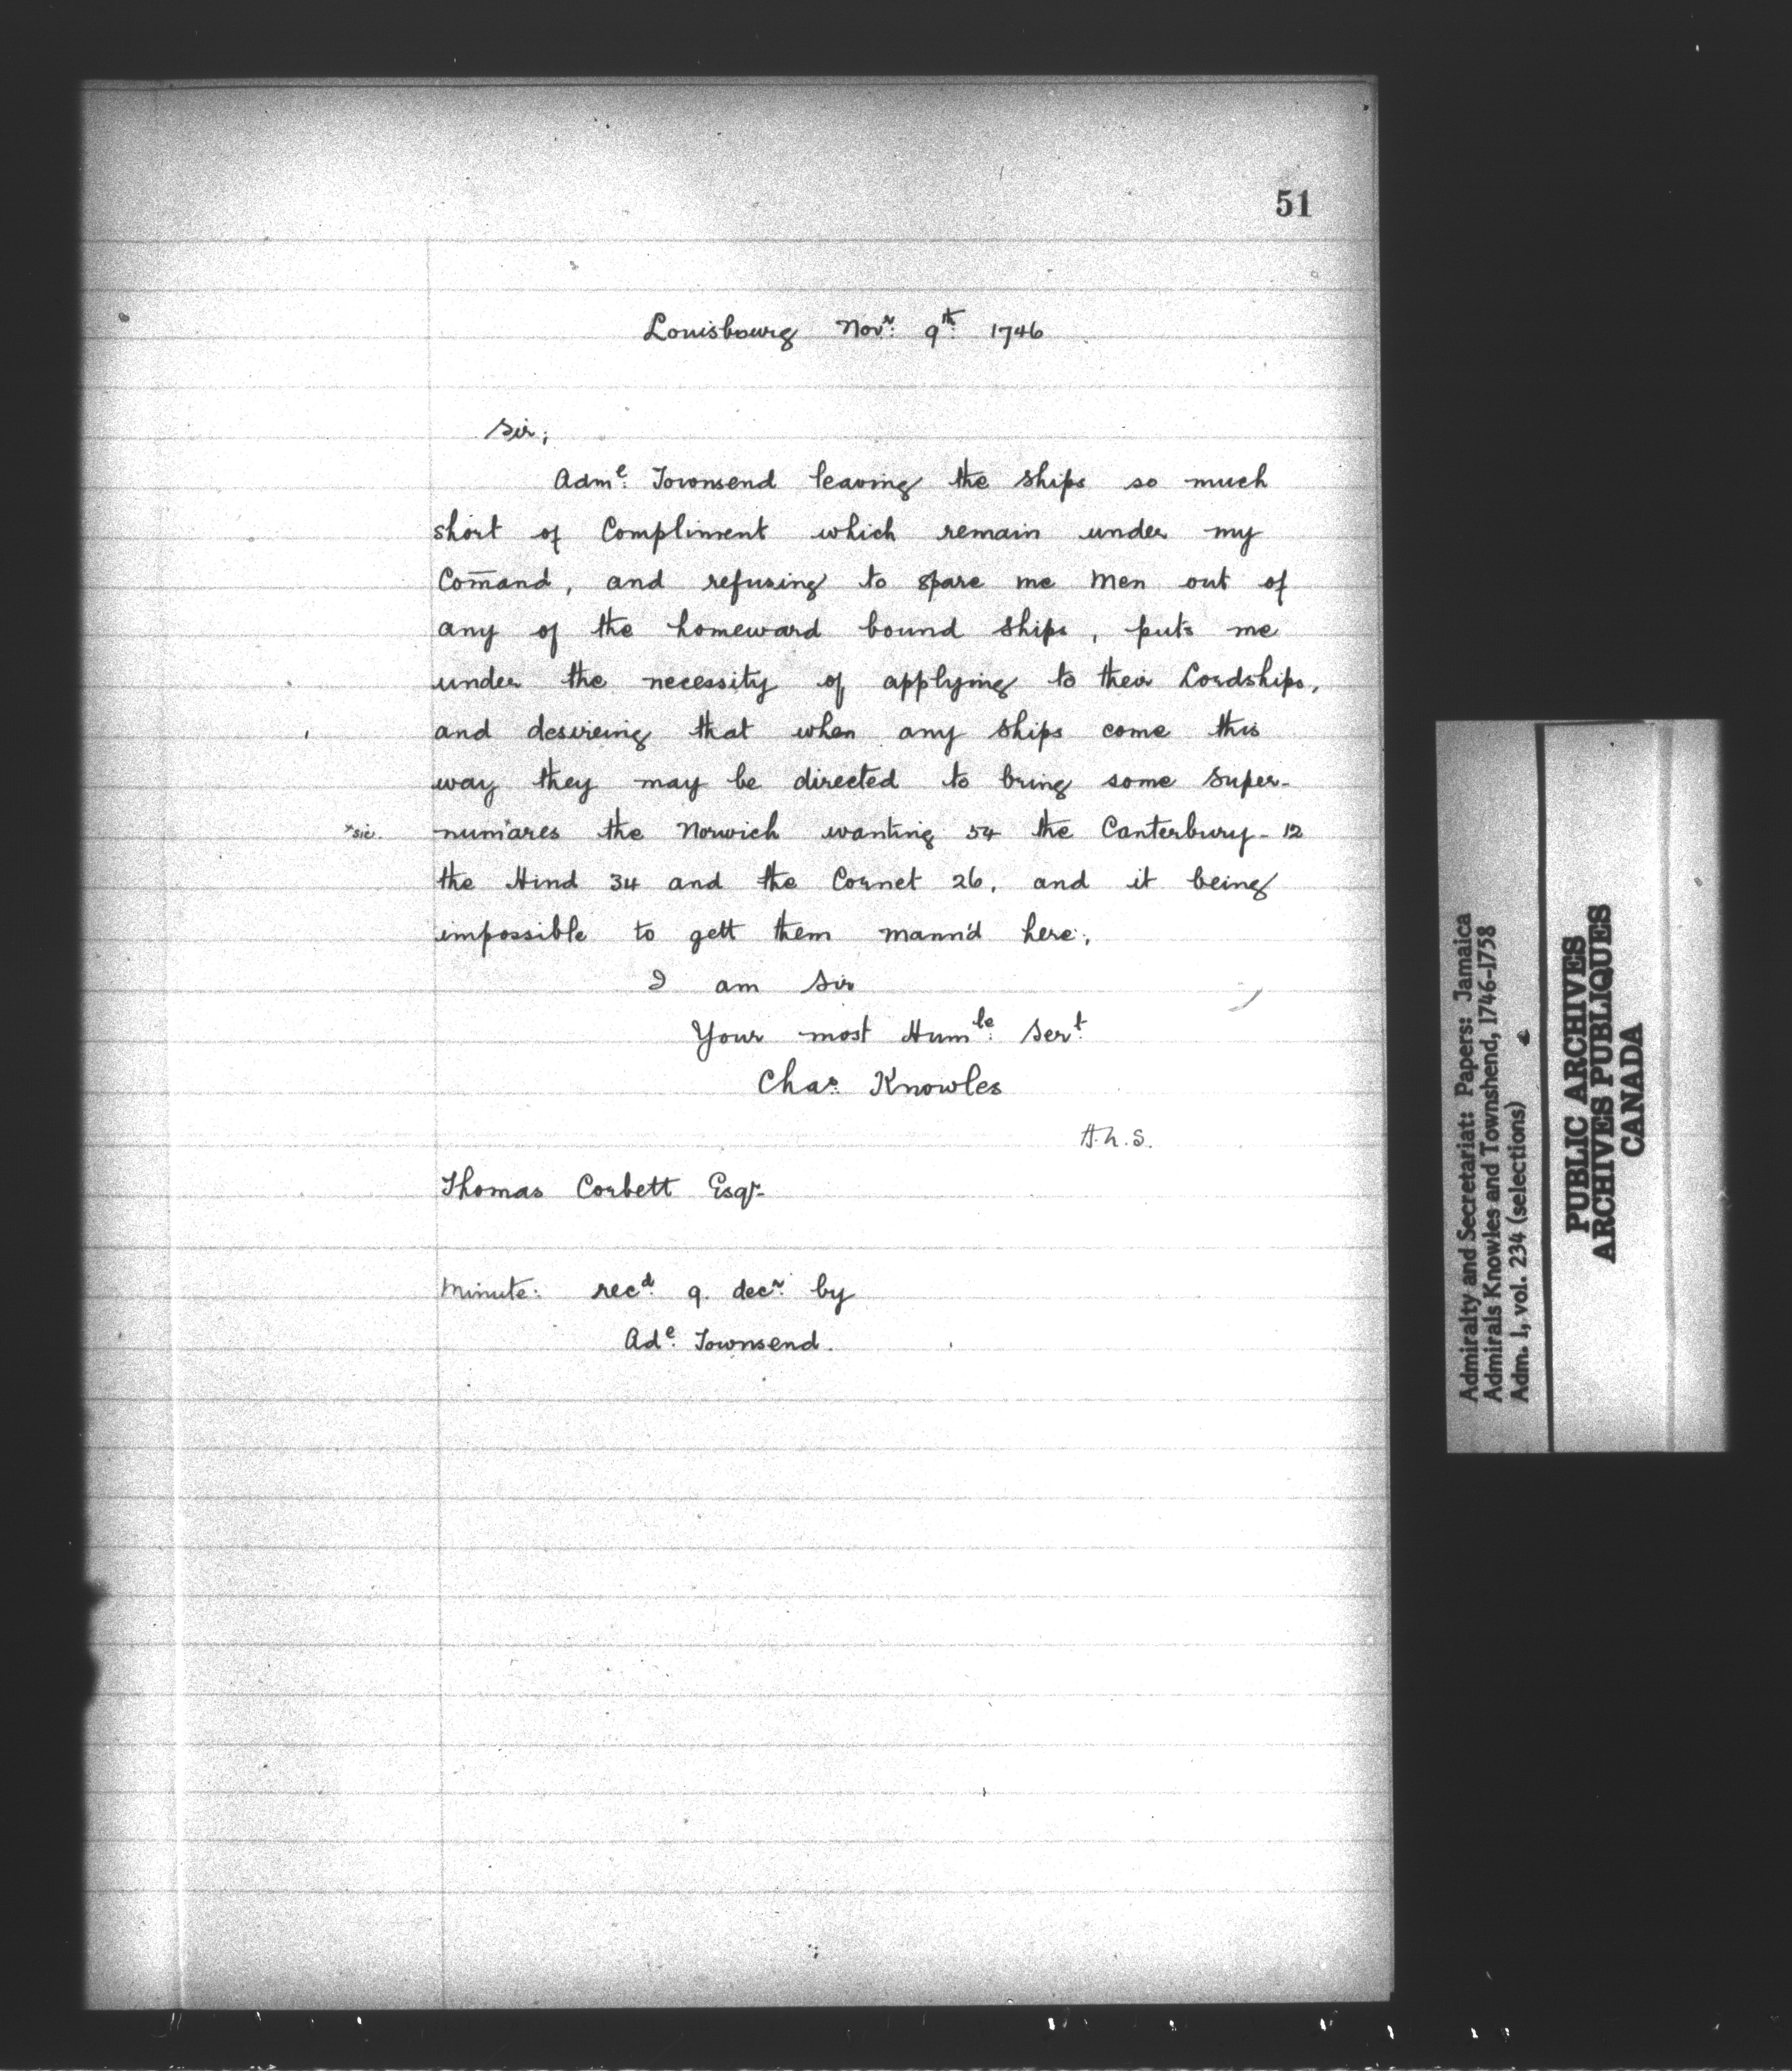 51
Louisbourg Novr: 9th: 1746
Sir;
Adme: Townsend leaving the ships so much
short of Compliment which remain under my
Com̄and, and refusing to spare me Men out of
any of the homeward bound Ships, puts me
under the necessity of applying to their Lordships,
and desireing that when any Ships come this
way they may be directed to bring some Super-
*sic. num'ares the Norwich wanting 54 the Canterbury - 12
the Hind 34 and the Cornet 26, and it being
impossible to gett them mann'd here;
I am Sir
Your most Humble: Sert:
Chas: Knowles
H.h.S.
Thomas Corbett Esqr.
Minute: recd: 9. decr: by
Ade: Townsend.
Admiralty and Secretariat: Papers: Jamaica
Admirals Knowles and Townshend, 1746-1758
Adm. 1, vol. 234 (selections)
PUBLIC ARCHIVES
ARCHIVES PUBLIQUES
CANADA